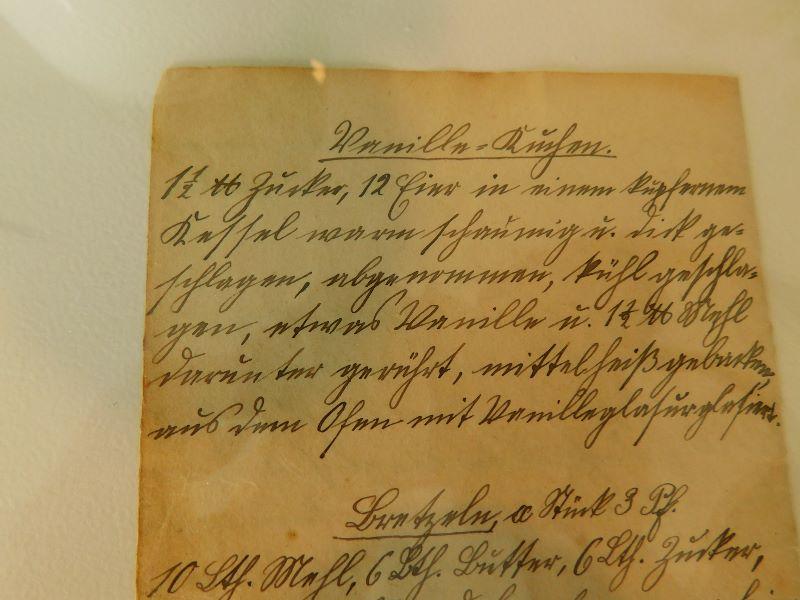 Vanille-Kuchen.
1½ ℔ Zucker, 12 Eier in einem kupfernem
Kessel warm schaumig u. dick ge-
schlagen, abgenommen, kühl geschla-
gen, etwas Vanille u. 1½ ℔ Mehl
darunter gerührt, mittelheiß gebacken,
aus dem Ofen mit Vanilleglasur glasiert.
Bretzeln, a Stück 3 Pf.
10 Lth. Mehl, 6 Lth. Butter, 6 Lth. Zucker,